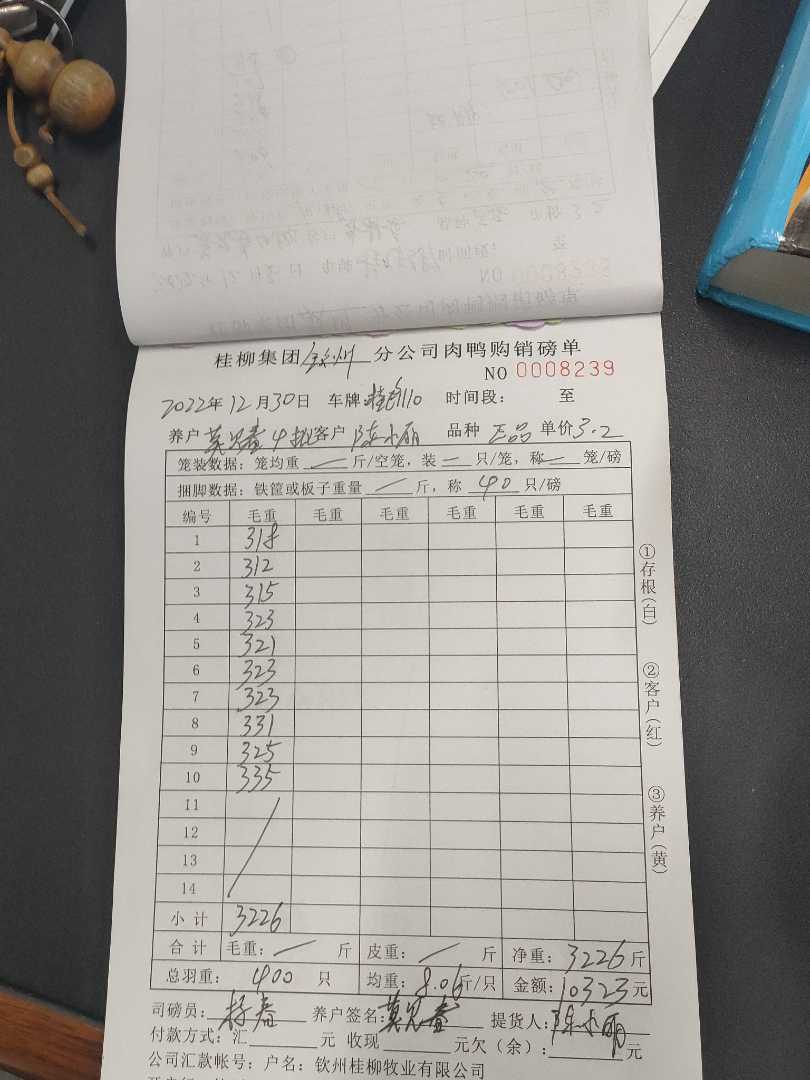 桂柳集团钦州分公司肉鸭购销磅单
NO 0008239
2022年12月30日 车牌: 时间段: 至
养户 莫 4批 客户 陈小丽 品种 正品 单价 3.2
笼装数据: 笼均重 斤/空笼, 装 只/笼, 称 笼/磅
捆脚数据: 铁筐或板子重量 斤, 称 40 只/磅
编号 毛重 毛重 毛重 毛重 毛重 毛重
1 318
2 312
3 315
4 323
5 321
6 323
7 323
8 331
9 325
10 335
11
12
13
14
小计 3226
合计 毛重: 斤 皮重: 斤 净重: 3226斤
总羽重: 400 只 均重: 8.06斤/只 金额: 10323元
司磅员: 杨春 养户签名: 莫 提货人: 陈小丽
付款方式: 汇 元 收现 元欠(余): 元
公司汇款帐号: 户名: 钦州桂柳牧业有限公司
①存根(白)
②客户(红)
③养户(黄)